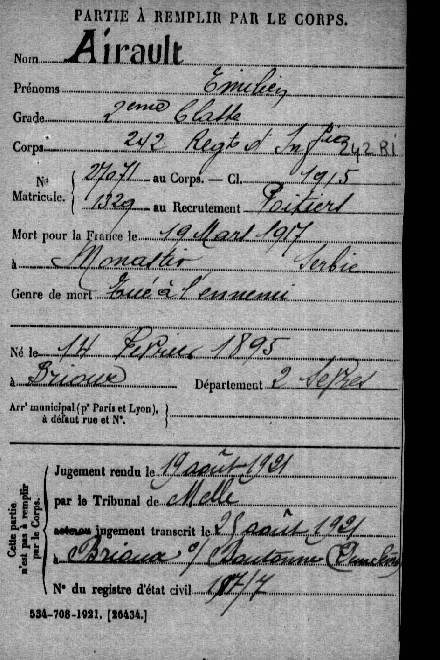 PARTIE À REMPLIR PAR LE CORPS.
Nom Airault
Prénoms Emilien
Grade 2eme Classe
Corps 242 Regt d'Infie 242 RI
Nº Matricule. { 27071 au Corps. — Cl. 1915
1329 au Recrutement Poitiers
Mort pour la France le 19 Mars 1917
à Monastir Serbie
Genre de mort Tué à l'ennemi
Né le 14 Fevrier 1895
à Brioux Département 2 Sevres
Arrt municipal (pr Paris et Lyon), à défaut rue et Nº. }
Cette partie n'est pas à remplir par le Corps. {
Jugement rendu le 19 août 1921
par le Tribunal de Melle
jugement transcrit le 25 août 1921
à Brioux s/ Boutonne
Nº du registre d'état civil
534-708-1921. [26434.]